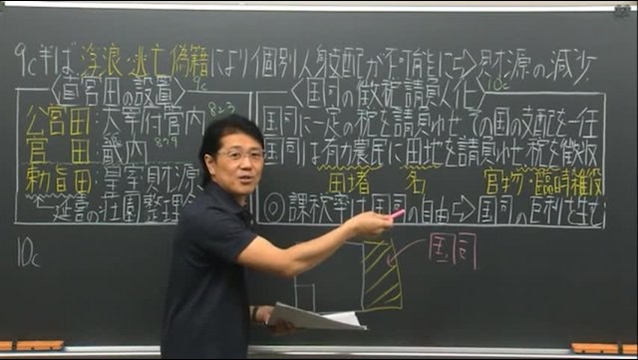 9c半ば 浮浪・逃亡 偽籍により個別人身支配が不可能に⇨財源の減少
〈直営田の設置〉9c
公営田:大宰府管内 823
官 田:畿内 879
勅旨田:皇室財源
延喜の荘園整理令
〈国司の徴税請負人化〉10c
国司に一定の税を請負わせて国の支配を一任
国司は有力農民に田地を請負わせ税を徴収
田堵 名 官物・臨時雑役
◎課税率は国司の自由⇨国司の巨利を生む
10c
国司